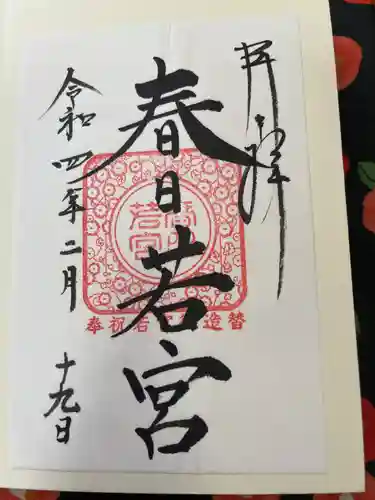 奉拝
春日若宮
令和四年二月
十九日
奉祝若宮造替